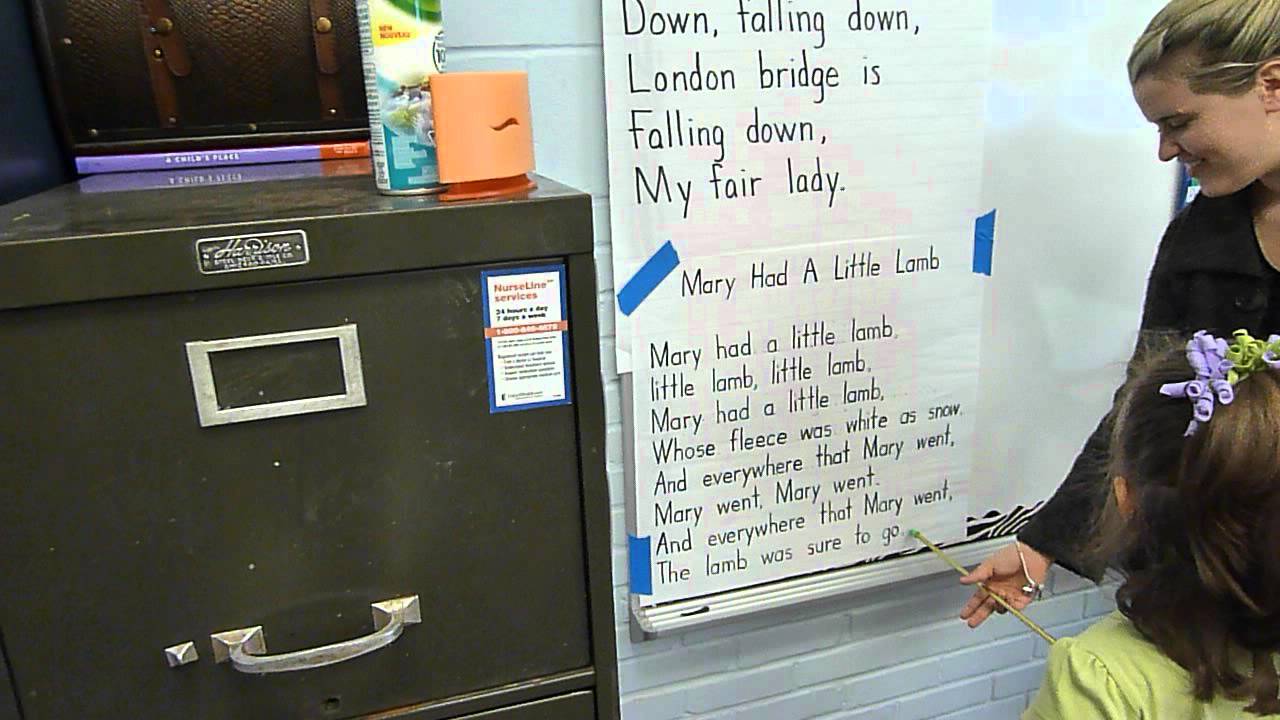 Down, falling down,
London bridge is
Falling down,
My fair lady.
Mary Had A Little Lamb
Mary had a little lamb.
little lamb, little lamb,
Mary had a little lamb,
Whose fleece was white as snow.
And everywhere that Mary went,
Mary went, Mary went.
And everywhere that Mary went,
The lamb was sure to go.
NEW
NOUVEAU
A CHILD'S PLACE
NurseLine
services
24 hours a day
7 days a week